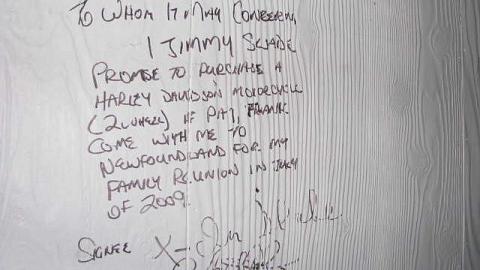 To Whom It May Concern,
I Jimmy Slade
Promise to purchase a
Harley Davidson Motorcycle
(2 wheel) if Pat, Frank
come with me to
Newfoundland for my
Family Reunion in July
of 2009.
Signee X